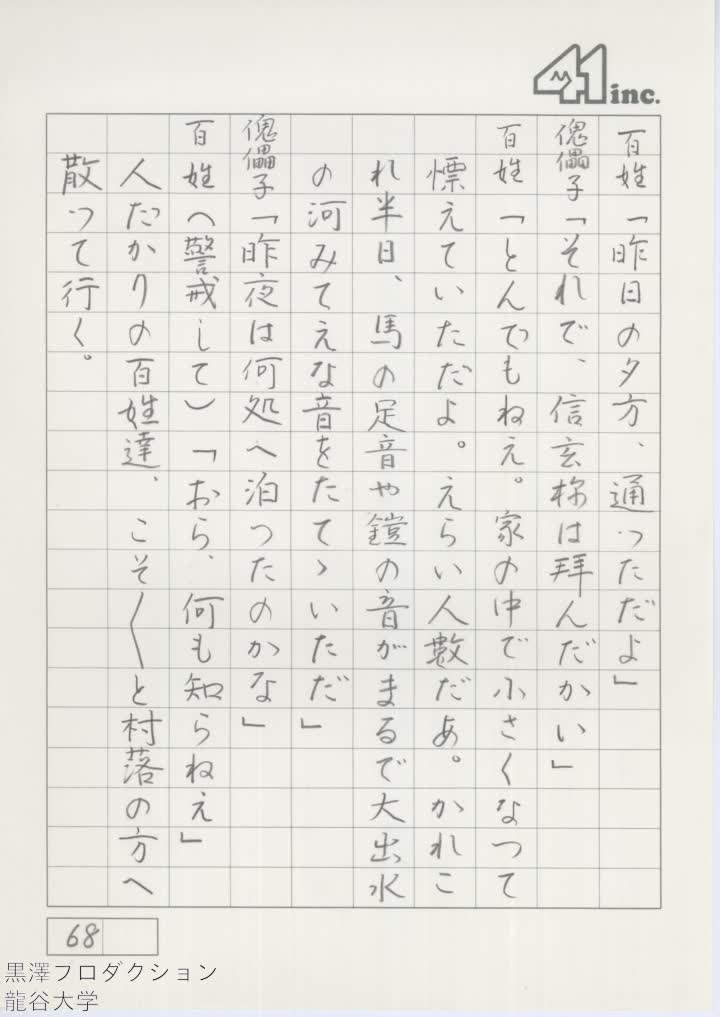 41 inc.
百姓「昨日の夕方、通ったただよ」
傀儡子「それで、信玄称は拝んだかい」
百姓「とんでもねえ。家の中で小さくなつて
慓えていただよ。えらい人數だあ。かれこ
れ半日、馬の足音や鎧の音がまるで大出水
の河みてえな音をたてゝいただ」
傀儡子「昨夜は何処へ泊つたのかな」
百姓(警戒して)「おら、何も知らねえ」
人だかりの百姓達、こそ〱と村落の方へ
散って行く。
68
黒澤フロダクション
龍谷大学